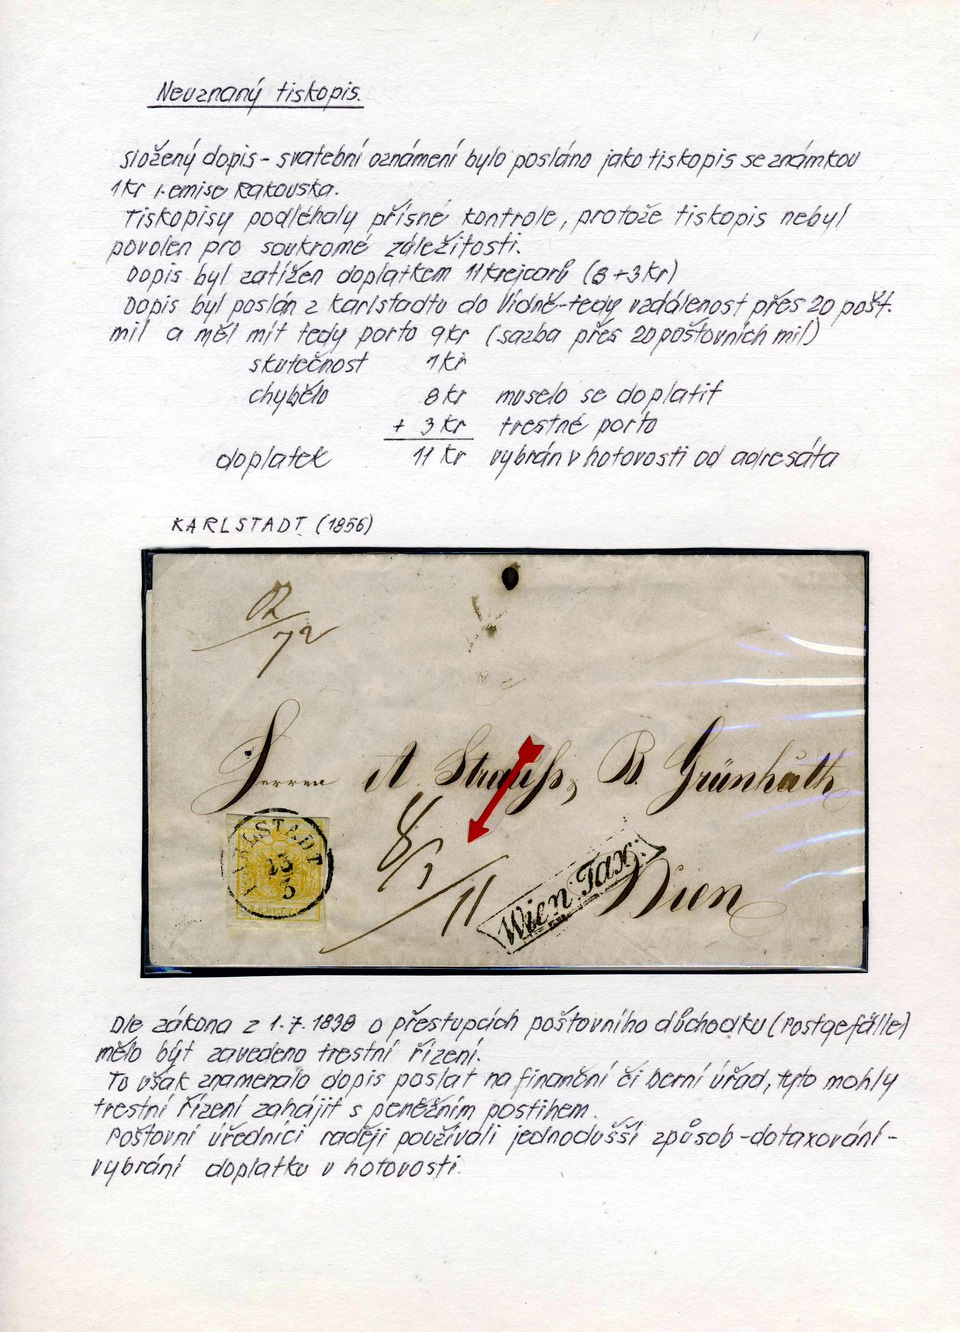 Neuznaný tiskopis.
Složený dopis - svatební oznámení bylo posláno jako tiskopis se známkou
1kr I. emise Rakouska.
Tiskopisy podléhaly přísné kontrole, protože tiskopis nebyl
povolen pro soukromé záležitosti.
Dopis byl zatížen doplatkem 11 krejcarů (8+3kr)
Dopis byl poslán z Karlstadtu do Vídně - tedy vzdálenost přes 20 pošt.
mil a měl mít tedy porto 9kr (sazba přes 20 poštovních mil)
skutečnost 1kr
chybělo 8kr muselo se doplatit
+ 3kr trestné porto
doplatek 11kr vybrán v hotovosti od adresáta
KARLSTADT (1856)
72
Herren A. Strauss, B. Grünhuth
KARLSTADT
13
3
8/3
11
Wien Tax.
Wien
Dle zákona z 1.7.1838 o přestupcích poštovního důchodku (Postgefälle)
mělo být zavedeno trestní řízení.
To však znamenalo dopis poslat na finanční či berní úřad, tyto mohly
trestní řízení zahájit s peněžním postihem.
Poštovní úředníci raději používali jednodušší způsob - dotaxování -
vybrání doplatku v hotovosti.